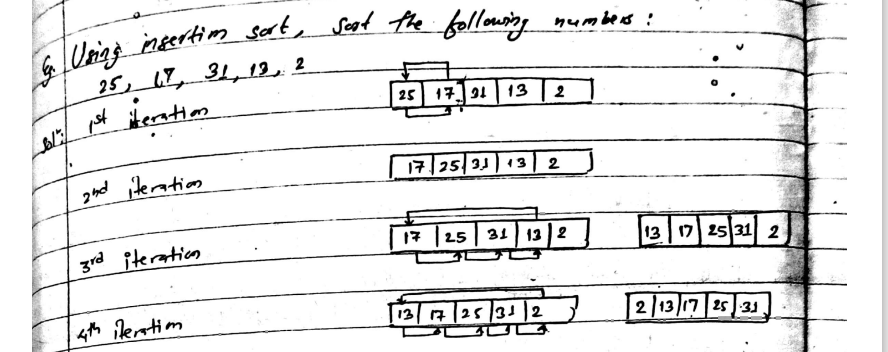 Eg. Using insertion sort, sort the following numbers :
25, 17, 31, 13, 2
Solⁿ: 1st iteration 25 17 31 13 2
2nd iteration 17 25 31 13 2
3rd iteration 17 25 31 13 2 13 17 25 31 2
4th iteration 13 17 25 31 2 2 13 17 25 31